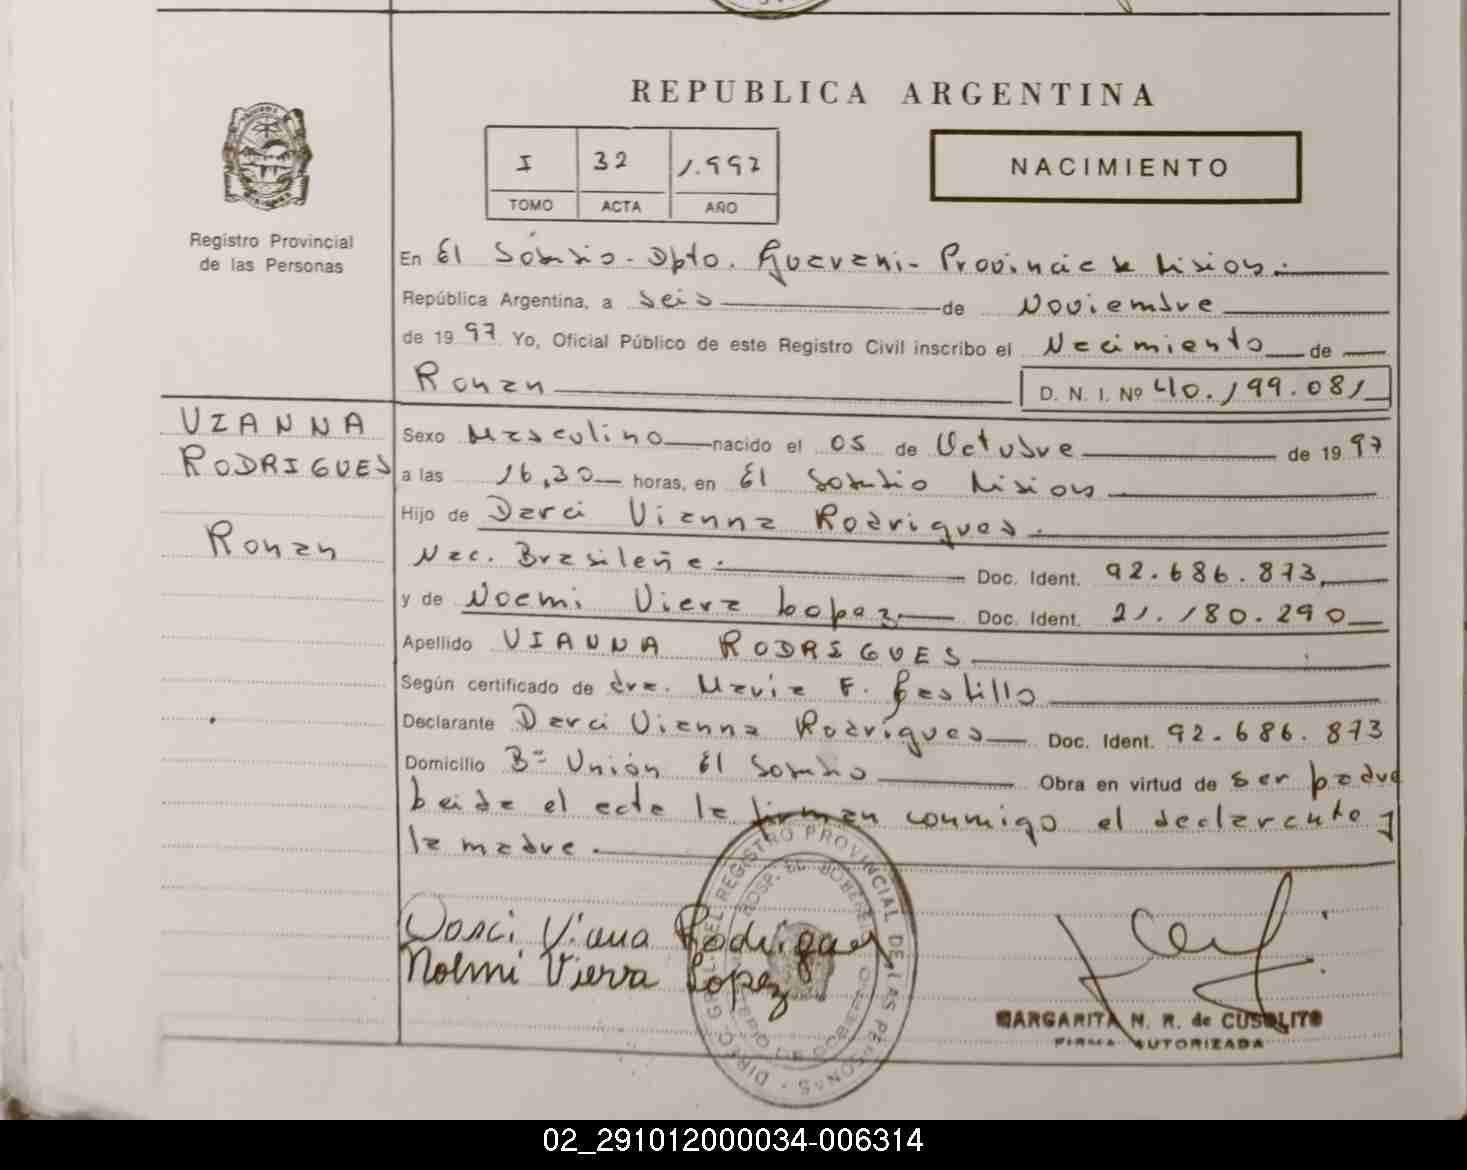 REPUBLICA ARGENTINA
I 32 1.997
TOMO ACTA AÑO
NACIMIENTO
Registro Provincial
de las Personas
En El Soberbio - Dpto. Guarani - Provincia de Misiones.
República Argentina, a seis de Noviembre
de 1997 Yo, Oficial Público de este Registro Civil inscribo el Nacimiento de
Ronan D. N. I. Nº 40.199.081
VIANNA
RODRIGUES
Ronan
Sexo Masculino nacido el 05 de Octubre de 1997
a las 16,30 horas, en El Soberbio Misiones
Hijo de Darci Vianna Rodrigues.
Nac. Brasileña. Doc. Ident. 92.686.873,
y de Noemi Viera Lopez Doc. Ident. 21.180.290
Apellido VIANNA RODRIGUES
Según certificado de dra. Maria F. Castillo
Declarante Darci Vianna Rodrigues Doc. Ident. 92.686.873
Domicilio Bº Unión El Soberbio Obra en virtud de ser padre
Leida el acta la firman conmigo el declarante y
la madre.
Darci Viana Rodrigues
Noemi Vierra Lopez
DIREC. GRAL. DEL REGISTRO PROVINCIAL DE LAS PERSONAS
MARGARITA N. R. de CUSOLITO
FIRMA AUTORIZADA
02_291012000034-006314